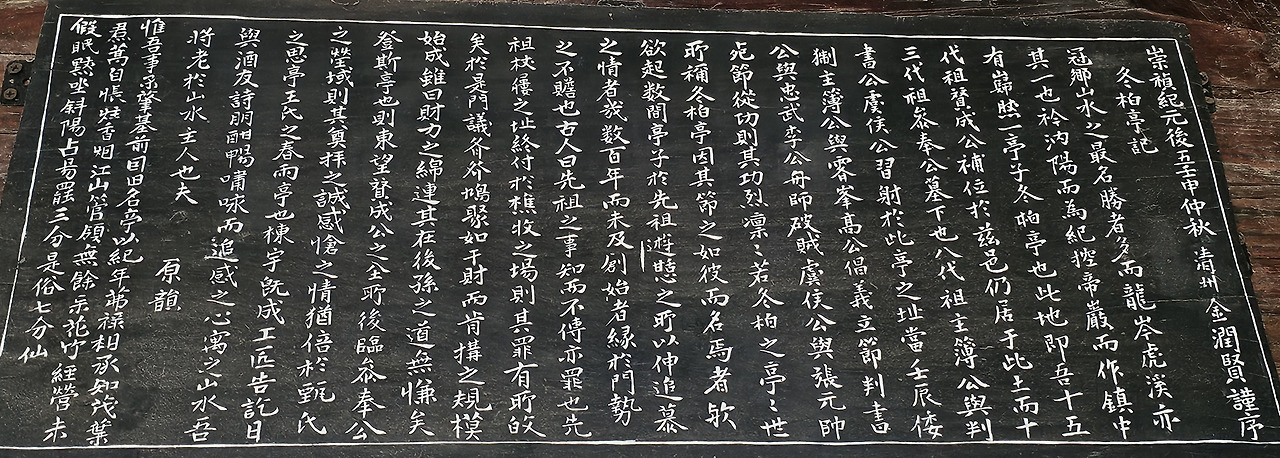 崇禎紀元後五壬申仲秋 清州 金潤賢 謹序
冬柏亭記
冠鄕山水之最名勝者多而龍岑虎溪亦
其一也衿汭陽而爲紀控帝巖而作鎭中
有巋然一亭子冬柏亭也此地即吾十五
代祖贊成公補位於玆邑仍居于此土而十
三代祖叅奉公墓下也八代祖主簿公與判
書公虞侯公習射於此亭之址當壬辰倭
主簿公與霽峯高公倡義立節判書
公與忠武李公舟師破賊虞侯公與張元帥
死節從功則其功烈凛〻若冬柏之亭〻世
所稱冬柏亭因其節之如彼而名焉者欤
欲起數間亭子於先祖遊憩之所以伸追慕
之情者哉數百年而未及刱始者緣於門勢
之不贍也古人曰先祖之事知而不傳亦罪也先
祖杖屨之址終付於樵牧之場則其罪有所攸
矣於是門議斧斧鳩聚如干財而肯搆之規模
始成雖曰財力之綿連其在後孫之道無慊矣
登斯亭也則東望贊成公之全所後臨叅奉公
之塋域則其奠拜之誠感愴之情猶倍於甄氏
之思亭王氏之春雨亭也棟宇旣成工匠告訖日
與酒友詩朋酣暢嘯咏而追感之心寓之山水吾
將老於山水主人也夫
原韻
惟吾事系肇基前因旧名亭以紀年弟祿相承如茂葉
君萬自悵炷香烟江山管領無餘示花竹經營未
假眠黙坐斜陽占易罷三分是俗七分仙